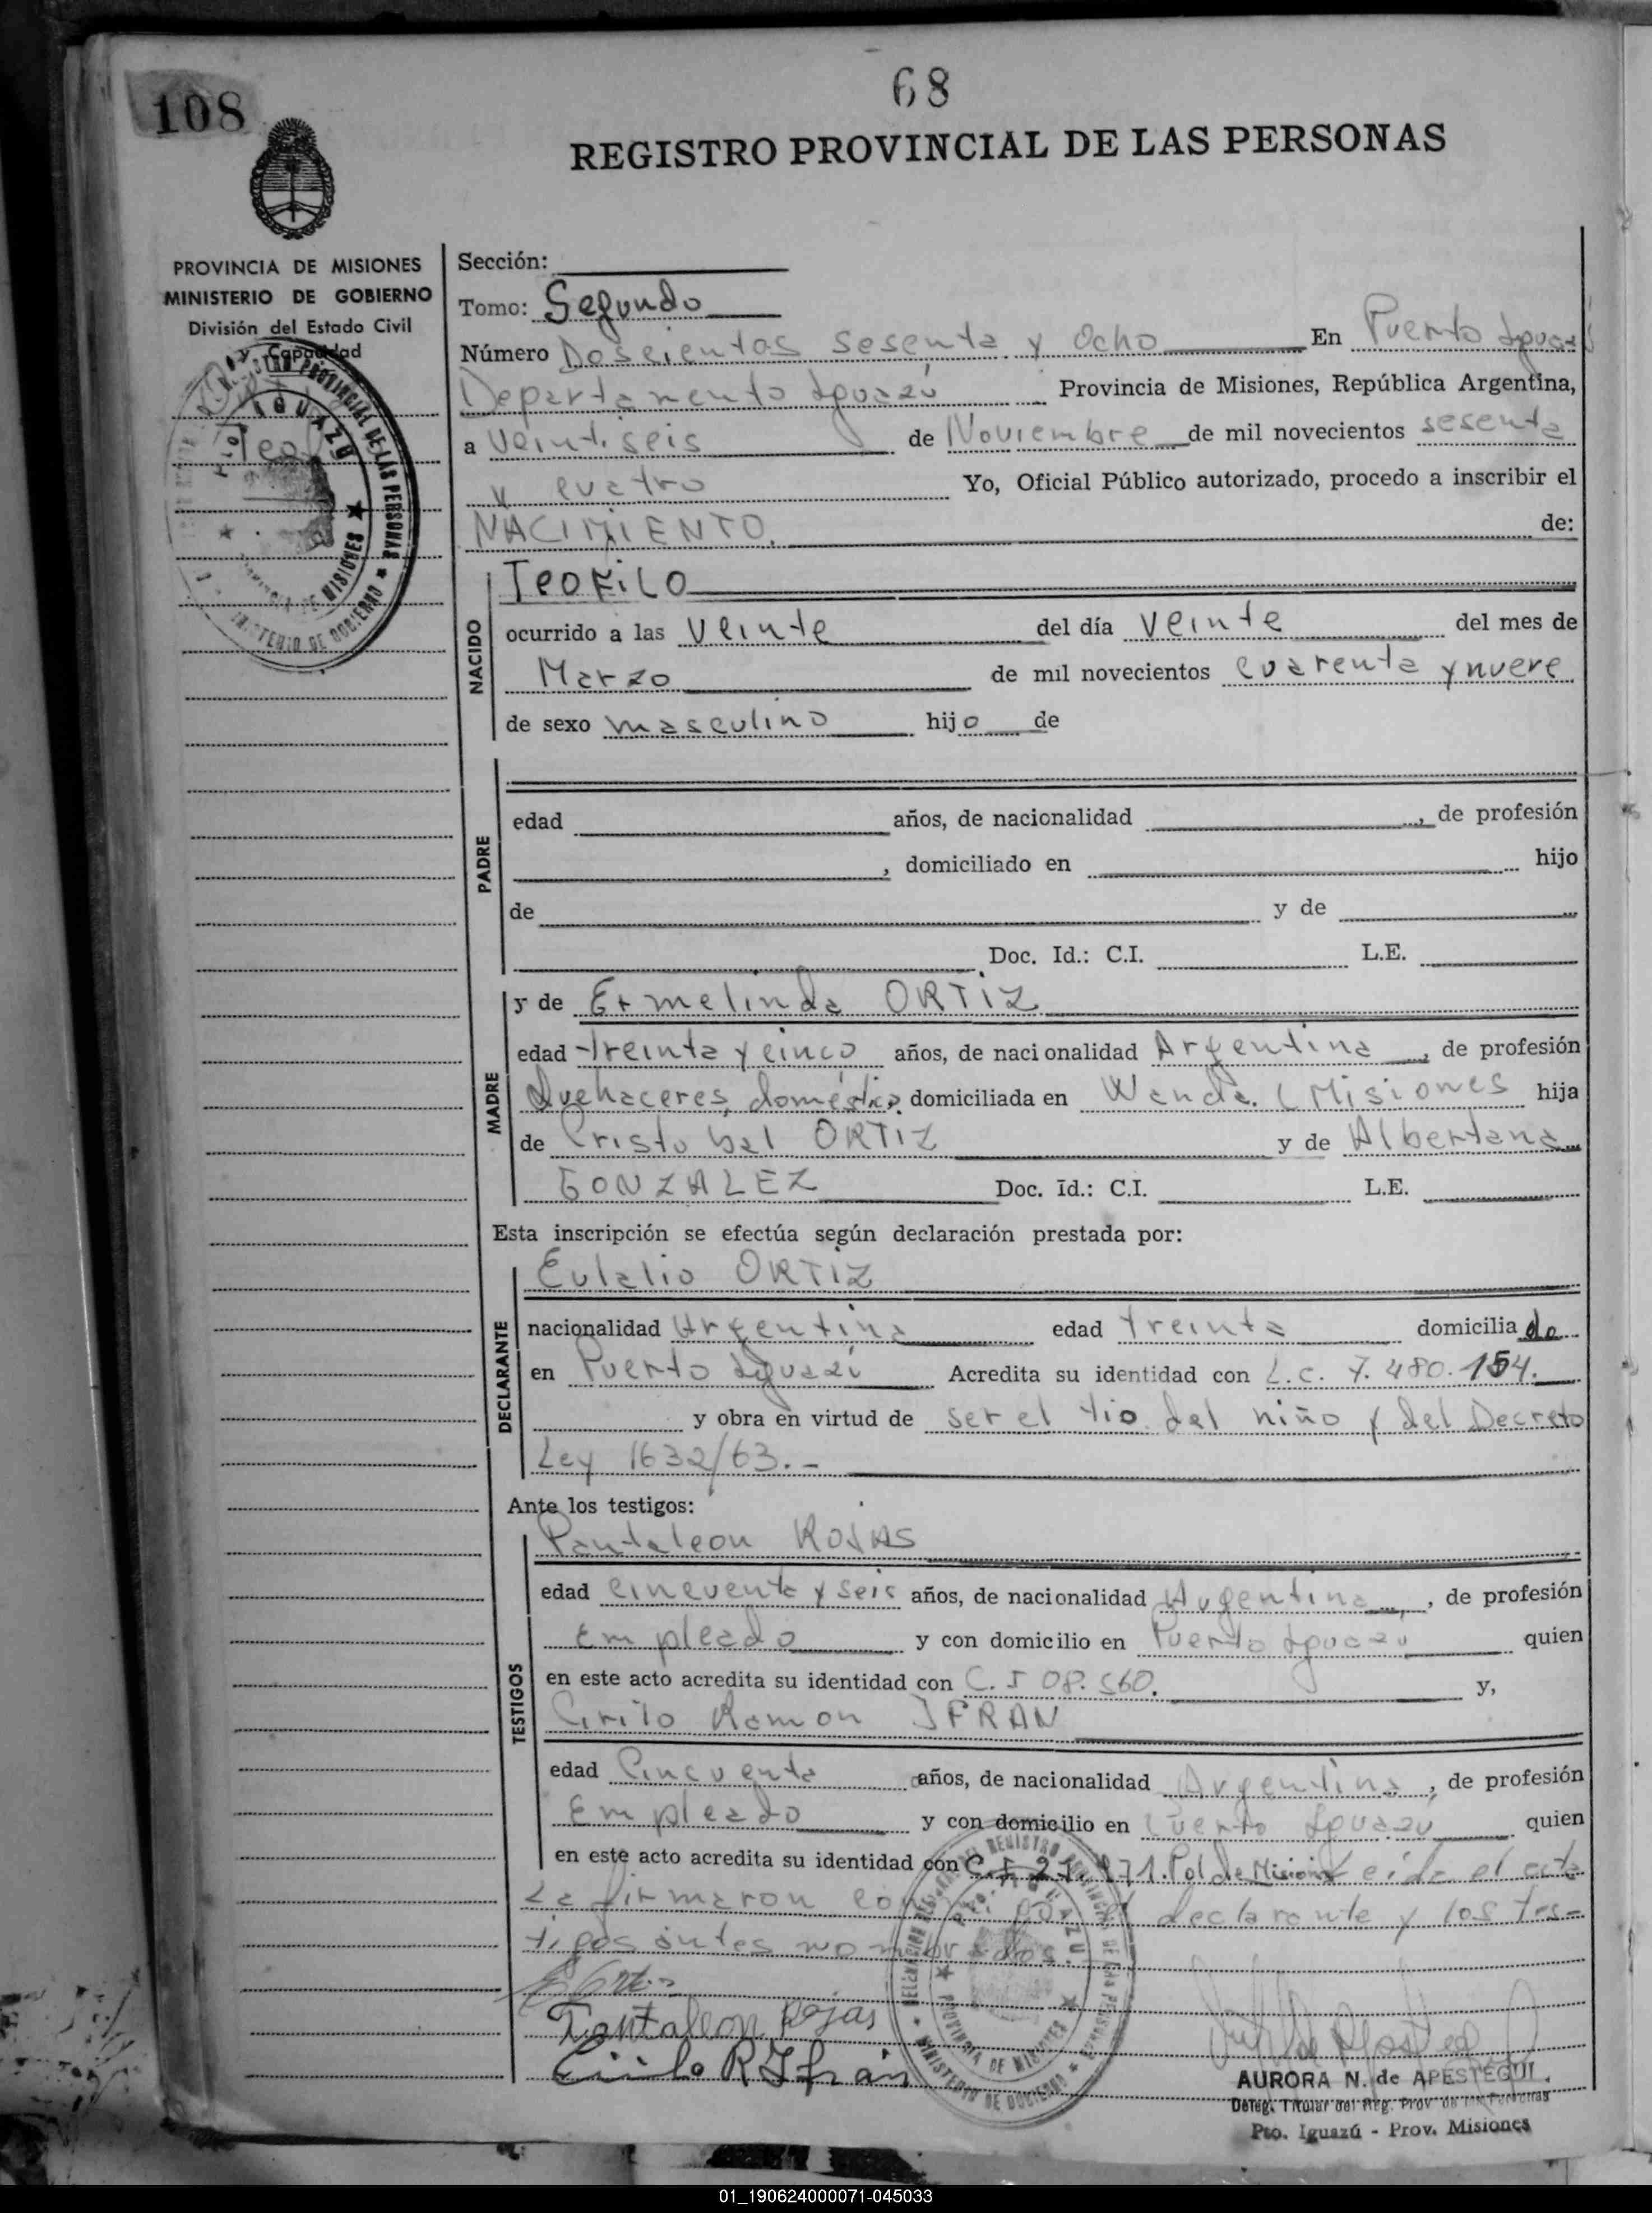 68
108
REGISTRO PROVINCIAL DE LAS PERSONAS
PROVINCIA DE MISIONES
MINISTERIO DE GOBIERNO
División del Estado Civil
y Capacidad
Sección:
Tomo: Segundo
Número Doscientos sesenta y Ocho En Puerto Iguazú
Departamento Iguazú Provincia de Misiones, República Argentina,
a Veintiseis de Noviembre de mil novecientos sesenta
y cuatro Yo, Oficial Público autorizado, procedo a inscribir el
NACIMIENTO. de:
NACIDO
TEOFILO
ocurrido a las Veinte del día Veinte del mes de
Marzo de mil novecientos cuarenta y nueve
de sexo masculino hijo de
PADRE
edad años, de nacionalidad , de profesión
, domiciliado en hijo
de y de
Doc. Id.: C.I. L.E.
MADRE
y de Ermelinda ORTIZ
edad treinta y cinco años, de nacionalidad Argentina, de profesión
Quehaceres doméstico domiciliada en Wanda (Misiones hija
de Cristobal ORTIZ y de Albertana
GONZALEZ Doc. Id.: C.I. L.E.
Esta inscripción se efectúa según declaración prestada por:
DECLARANTE
Eulalio ORTIZ
nacionalidad Argentina edad treinta domiciliado
en Puerto Iguazú Acredita su identidad con L.C. 7.480.154.
y obra en virtud de ser el tio del niño y del Decreto
Ley 1632/63.-
Ante los testigos:
TESTIGOS
Pantaleon ROJAS
edad cincuenta y seis años, de nacionalidad Argentina, de profesión
Empleado y con domicilio en Puerto Iguazú quien
en este acto acredita su identidad con C.I 08.560. y,
Cirilo Ramon IFRAN
edad Cincuenta años, de nacionalidad Argentina, de profesión
Empleado y con domicilio en Puerto Iguazú quien
en este acto acredita su identidad con C.I 27.971. Pol de Mision Leida el acta
La firmaron con el declarante y los tes-
tigos antes nombrados.
Pantaleon Rojas
Cirilo R Ifran
AURORA N. de APESTEGUI
Deleg. Titular del Reg. Prov de las Personas
Pto. Iguazú - Prov. Misiones
01_190624000071-045033